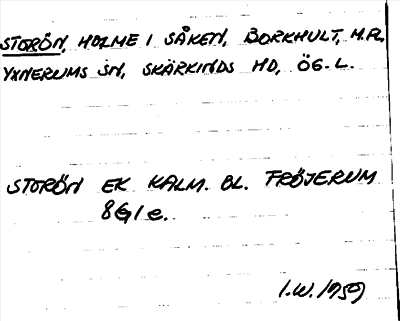 STORÖN, HOLME I SÅKEN, BORKHULT, H.R.,
YXNERUMS SN, SKÄRKINDS HD, ÖG. L.
STORÖN EK KALM. BL. FRÖJERUM
8G1e.
I.W. 1959